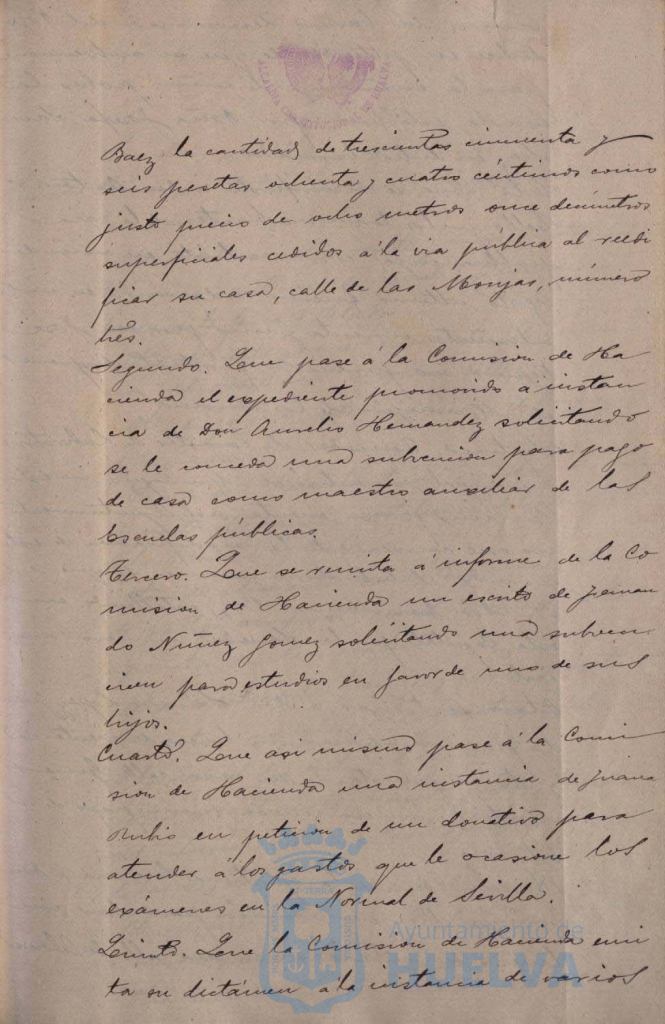 ALCALDIA CONSTITUCIONAL DE HUELVA
Baez la cantidad de trescientas cincuenta y
seis pesetas ochenta y cuatro céntimos como
justo precio de ocho metros once decímetros
superficiales cedidos á la via pública al reedi
ficar su casa, calle de las Monjas, número
tres.
Segundo. Que pase á la Comision de Ha
cienda el expediente promovido á instan
cia de Don Aurelio Hernandez solicitando
se le conceda una subvencion para pago
de casa como maestro auxiliar de las
Escuelas públicas.
Tercero. Que se remita á informe de la Co
mision de Hacienda un escrito de Fernan
do Nuñez Gomez solicitando una subven
cion para estudios en favor de uno de sus
hijos.
Cuarto. Que asi mismo pase á la Comi
sion de Hacienda una instancia de Juana
Rubio en peticion de un donativo para
atender á los gastos que le ocasione los
exámenes en la Normal de Sevilla.
Quinto. Que la Comision de Hacienda emi
ta su dictámen á la instancia de varios
Ayuntamiento de
HUELVA